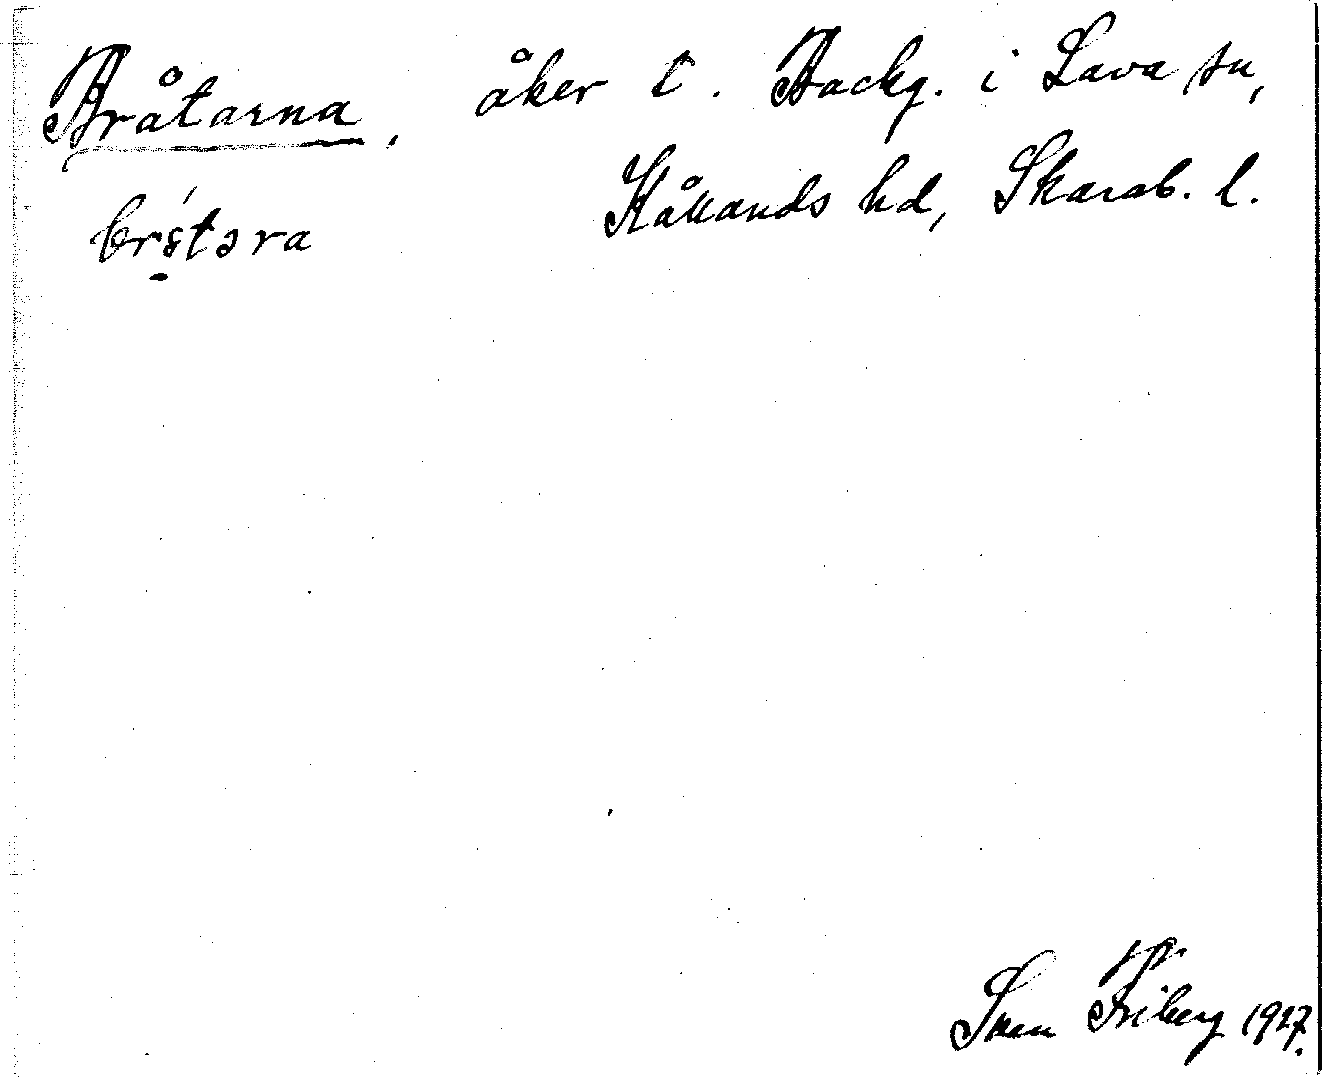 Bråtarna, åker t. Backg. i Lava sn,
Kållands hd, Skarab. l.
brǫ́tǝra
Sven Friberg 1927.